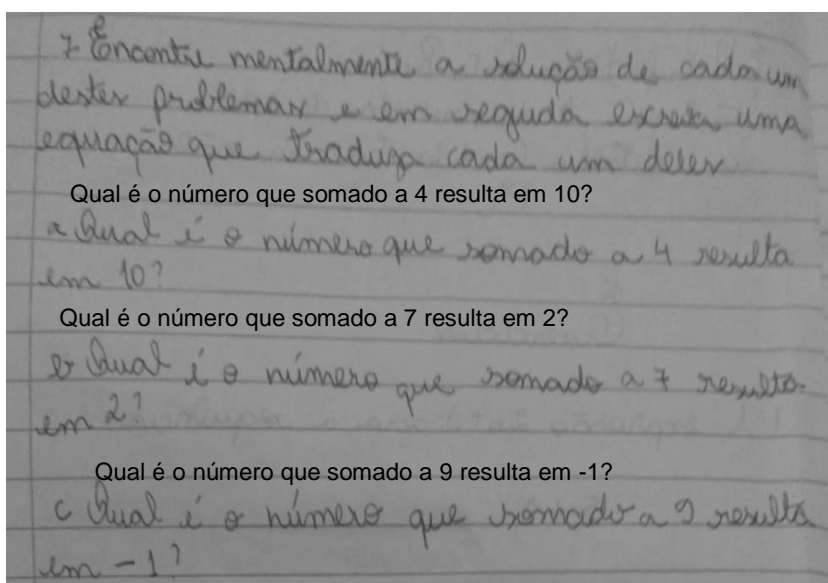 7- Encontre mentalmente a solução de cada um
destes problemas e em seguida escreva uma
equação que traduza cada um deles
Qual é o número que somado a 4 resulta em 10?
a Qual é o número que somado a 4 resulta
em 10?
Qual é o número que somado a 7 resulta em 2?
b Qual é o número que somado a 7 resulta
em 2?
Qual é o número que somado a 9 resulta em -1?
c Qual é o número que somado a 9 resulta
em -1?